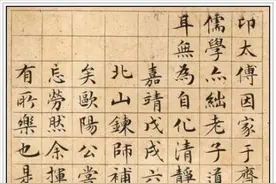 卬太傅因家于齊
儒學亦絀老子道
耳無為自化清靜
嘉靖戊戌六
北山鍊師補
矣歐陽公嘗
忘勞然余揮
有所樂也是